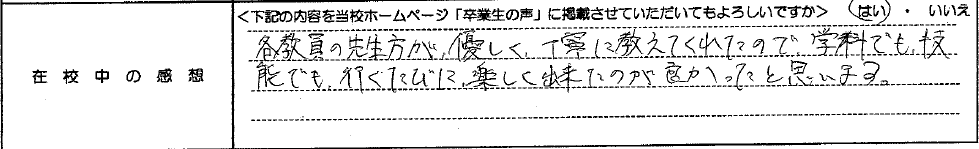 ＜下記の内容を当校ホームページ「卒業生の声」に掲載させていただいてもよろしいですか＞ はい ・ いいえ
在校中の感想
各教員の先生方が、優しく、丁寧に教えてくれたので、学科でも、技
能でも、行くたびに、楽しく出来たのが良かったと思います。